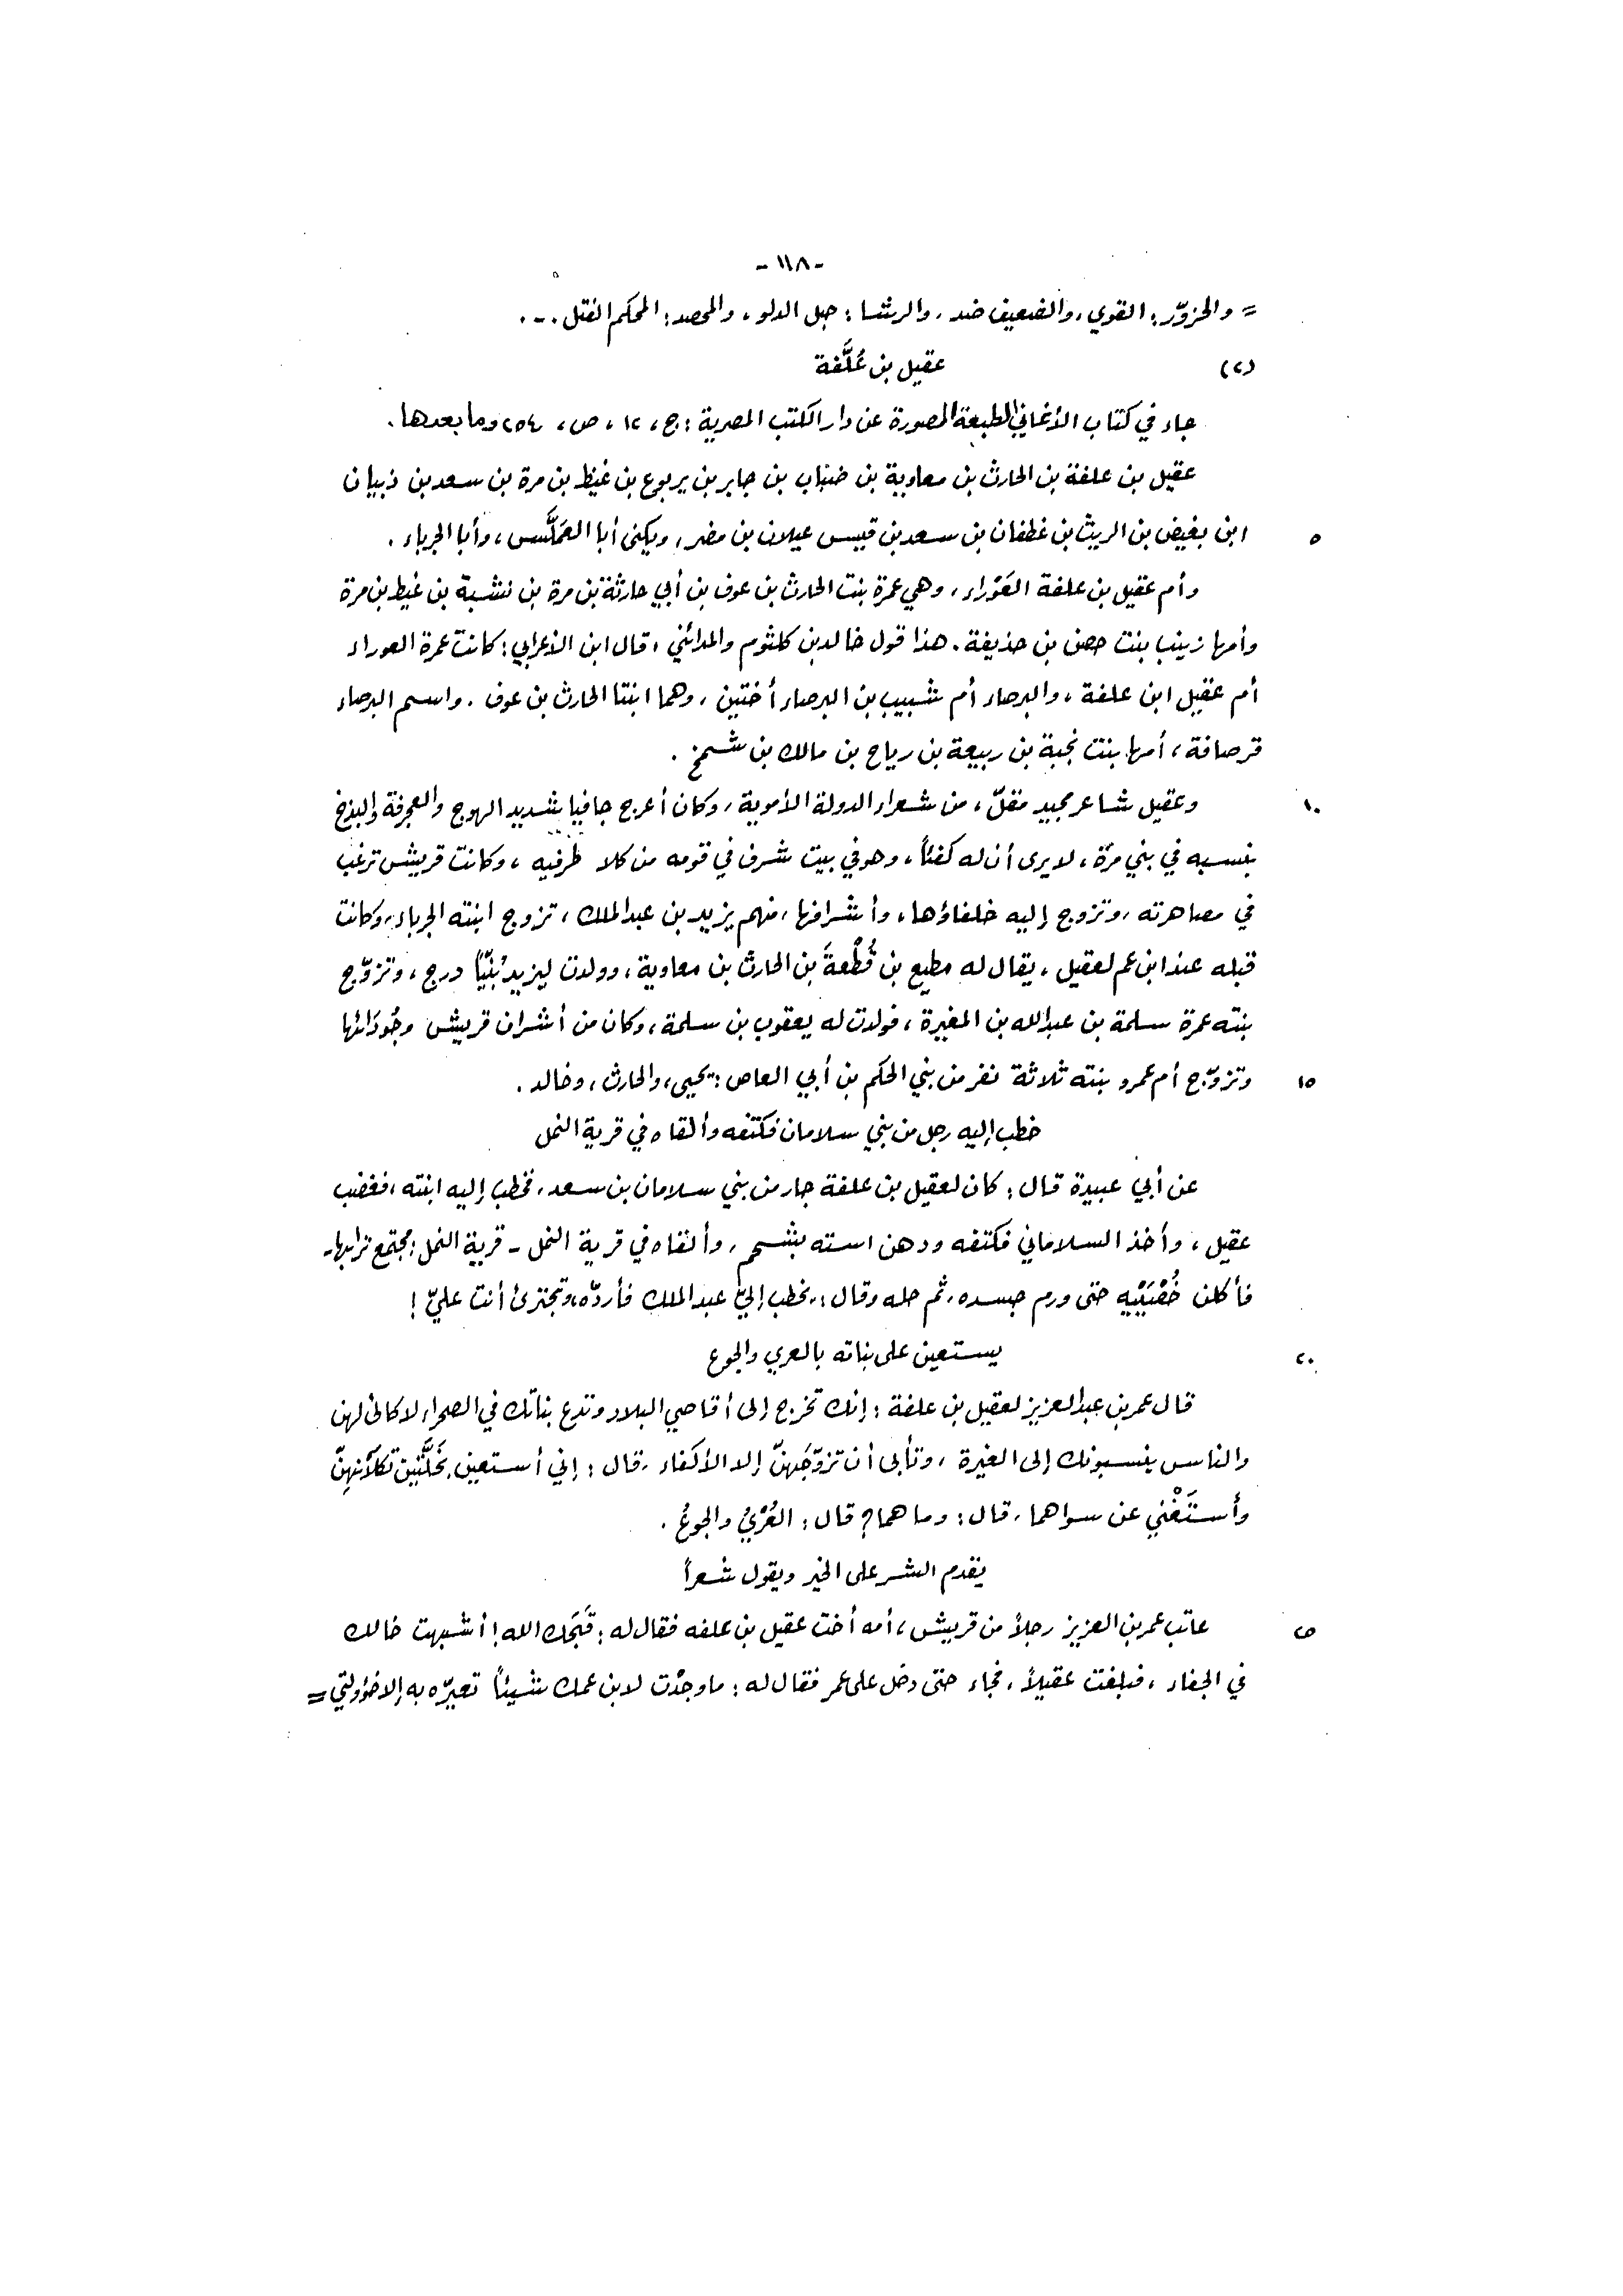 - ١١٨ -
= والحزوّر: القوي، والضعيف ضد، والرشا: حبل الدلو، والمحصد: المحكم الفتل . - .
(٢) عقيل بن عُلَّفة
جاء في كتاب الأغاني الطبعة المصورة عن دار الكتب المصرية : ج، ١٢، ص، ٢٥٤ وما بعدها.
عقيل بن علفة بن الحارث بن معاوية بن ضباب بن جابر بن يربوع بن غيظ بن مرة بن سعد بن ذبيان
٥ ابن بغيض بن الريث بن غطفان بن سعد بن قيس عيلان بن مضر، ويكنى أبا العَمَلَّس، وأبا الجرباء .
وأم عقيل بن علفة العَوْراء، وهي عمرة بنت الحارث بن عوف بن أبي حارثة بن مرة بن نشبة بن غيط بن مرة
وأمها زينب بنت حصن بن حذيفة. هذا قول خالد بن كلثوم والمدائني، قال ابن الأعرابي: كانت عمرة العوراء
أم عقيل ابن علفة، والبرصاء أم شبيب بن البرصاء أختين، وهما ابنتا الحارث بن عوف. واسم البرصاء
قرصافة، أمها بنت نجبة بن ربيعة بن رياح بن مالك بن شمخ .
١٠ وعقيل شاعر مجيد مقلّ، من شعراء الدولة الأموية، وكان أعرج جافيا شديد الهوج والعجرفة والبذخ
بنسبه في بني مرّة، لا يرى أن له كفئاً، وهو في بيت شرف في قومه من كلا طرفيه، وكانت قريش ترغب
في مصاهرته، وتزوج إليه خلفاؤها، وأشرافها، منهم يزيد بن عبد الملك، تزوج ابنته الجرباء، وكانت
قبله عند ابن عم لعقيل، يقال له مطيع بن قُطْعةَ بن الحارث بن معاوية، وولدت ليزيد بُنَيّاً درج، وتزوّج
بنته عمرة سلمة بن عبد الله بن المغيرة، فولدت له يعقوب بن سلمة، وكان من أشراف قريش وجُودَائها
١٥ وتزوّج أم عمرو بنته ثلاثة نفر من بني الحكم بن أبي العاص: يحيى، والحارث، وخالد .
خطب إليه رجل من بني سلامان فكتفه وألقاه في قرية النمل
عن أبي عبيدة قال: كان لعقيل بن علفة جار من بني سلامان بن سعد، فخطب إليه ابنته، فغضب
عقيل، وأخذ السلاماني فكتفه ودهن استه بشحم، وألقاه في قرية النمل - قرية النمل: مجتمع ترابها -
فأكلن خُصْيَيْه حتى ورم جسده، ثم حله وقال: يخطب إليّ عبد الملك فأردّه، وتجترئ أنت عليّ !
٢٠ يستعين على بناته بالعري والجوع
قال عمر بن عبد العزيز لعقيل بن علفة: إنك تخرج إلى أقاصي البلاد وتدع بناتك في الصحراء لا كالئ لهن
والناس ينسبونك إلى الغيرة، وتأبى أن تزوّجَهنّ إلا الأكفاء، قال: إني أستعين بخَلَّتين تكلآنهنّ
وأستَغْني عن سواهما، قال: وما هما؟ قال: العُرْيُ والجوعُ .
يقدم الشر على الخير ويقول شعراً
٢٥ عاتب عمر بن العزيز رجلاً من قريش، أمه أخت عقيل بن علفه فقال له: قَبَّحك الله! أشبهت خالك
في الجفاء، فبلغت عقيلاً، فجاء حتى دخل على عمر فقال له: ما وجدْت لابن عمك شيئاً تعيّره به إلا خؤولتي =